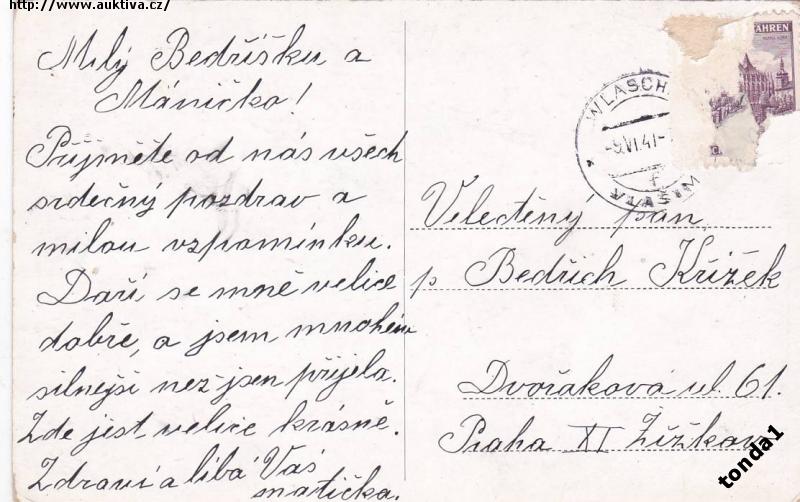 http://www.auktiva.cz/
Milý Bedříšku a
Máničko!
Přijměte od nás všech
srdečný pozdrav a
milou vzpomínku.
Daří se mně velice
dobře, a jsem mnohem
silnejší než jsem přijela.
Zde jest velice krásně.
Zdraví a líbá Vás
matička.
ÄHREN
WLASCH
-9.VI.41-
VLAŠIM
Velectěný pan
p Bedřich Křížek
Dvořáková ul. 61.
Praha XI Žižkov
tonda1